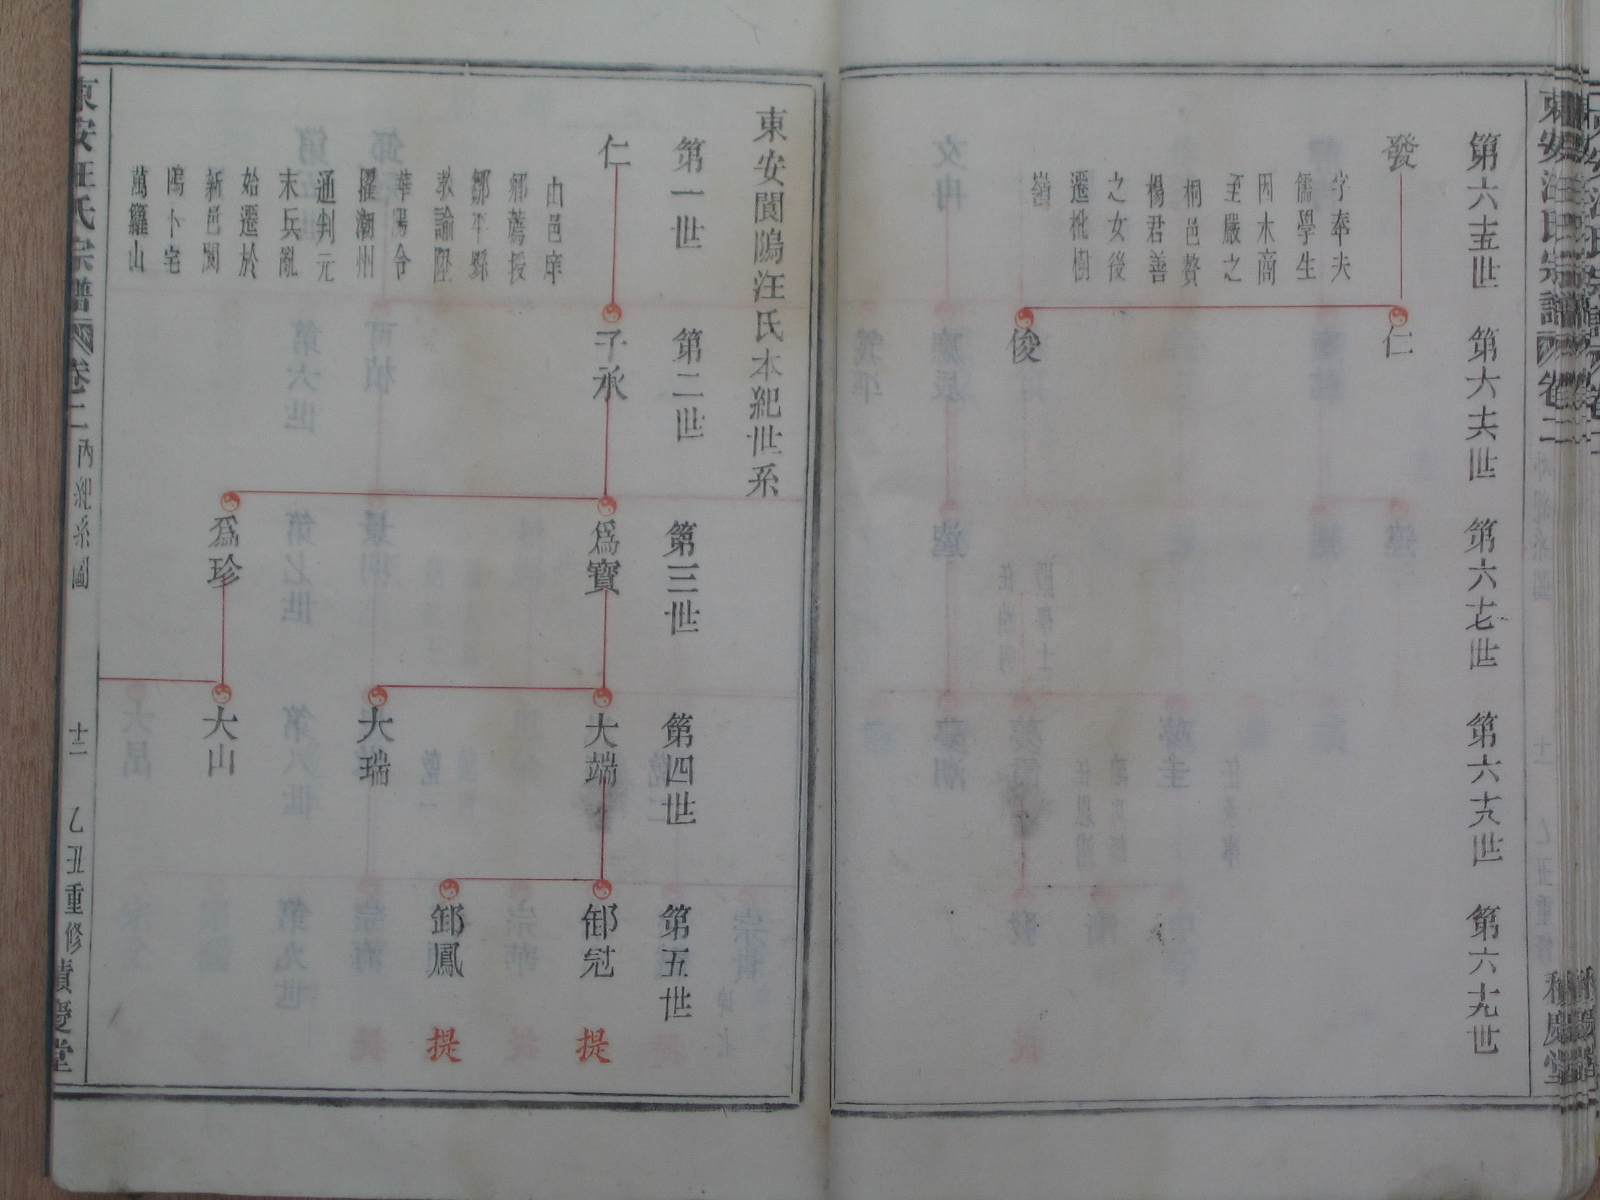 東安汪氏宗譜 卷二
積慶堂
第六十五世
第六十六世
第六十七世
第六十八世
第六十九世
發
字奉夫
儒學生
因木商
至嚴之
桐邑贅
楊君善
之女後
遷枇樹
嶺
仁
俊
東安閬鴻汪氏本紀世系
第一世
第二世
第三世
第四世
第五世
仁
由邑庠
鄉薦授
鄒平縣
教諭陞
華陽令
擢潮州
通判元
末兵亂
始遷於
新邑閬
鴻卜宅
萬籮山
子承
為寶
為珍
大端
大瑞
大山
御冠
御鳳
提
提
東安汪氏宗譜 卷二 內紀系圖 十二 乙丑重修 積慶堂